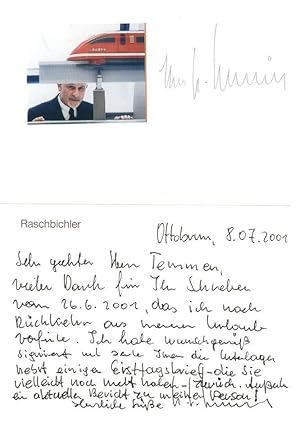 Raschbichler
Ottobrunn, 8.07.2001
Sehr geehrter Herr Temmen,
vielen Dank für Ihr Schreiben
vom 26.6.2001, das ich nach
Rückkehr aus meinem Urlaub
vorfinde. Ich habe wunschgemäß
signiert und sende Ihnen die Unterlagen
nebst einigen Ersttagsbriefen - die Sie
vielleicht noch nicht haben - zurück. Außerdem
ein aktueller Bericht zu meiner Person!
Herzliche Grüße